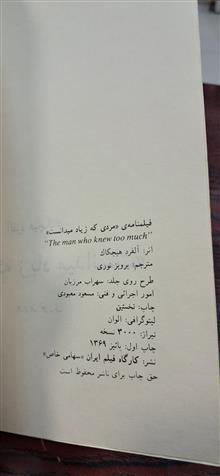 فیلمنامه‌ی «مردی که زیاد میدانست»
"The man who knew too much"
اثر: آلفرد هیچکاک
مترجم: پرویز نوری
طرح روی جلد: سهراب مرزبان
امور اجرائی و فنی: مسعود معبودی
چاپ: نخستین
لیتوگرافی: الوان
تیراژ: ۳۰۰۰ نسخه
چاپ اول: پائیز ۱۳۶۹
نشر: کارگاه فیلم ایران «سهامی خاص»
حق چاپ برای ناشر محفوظ است